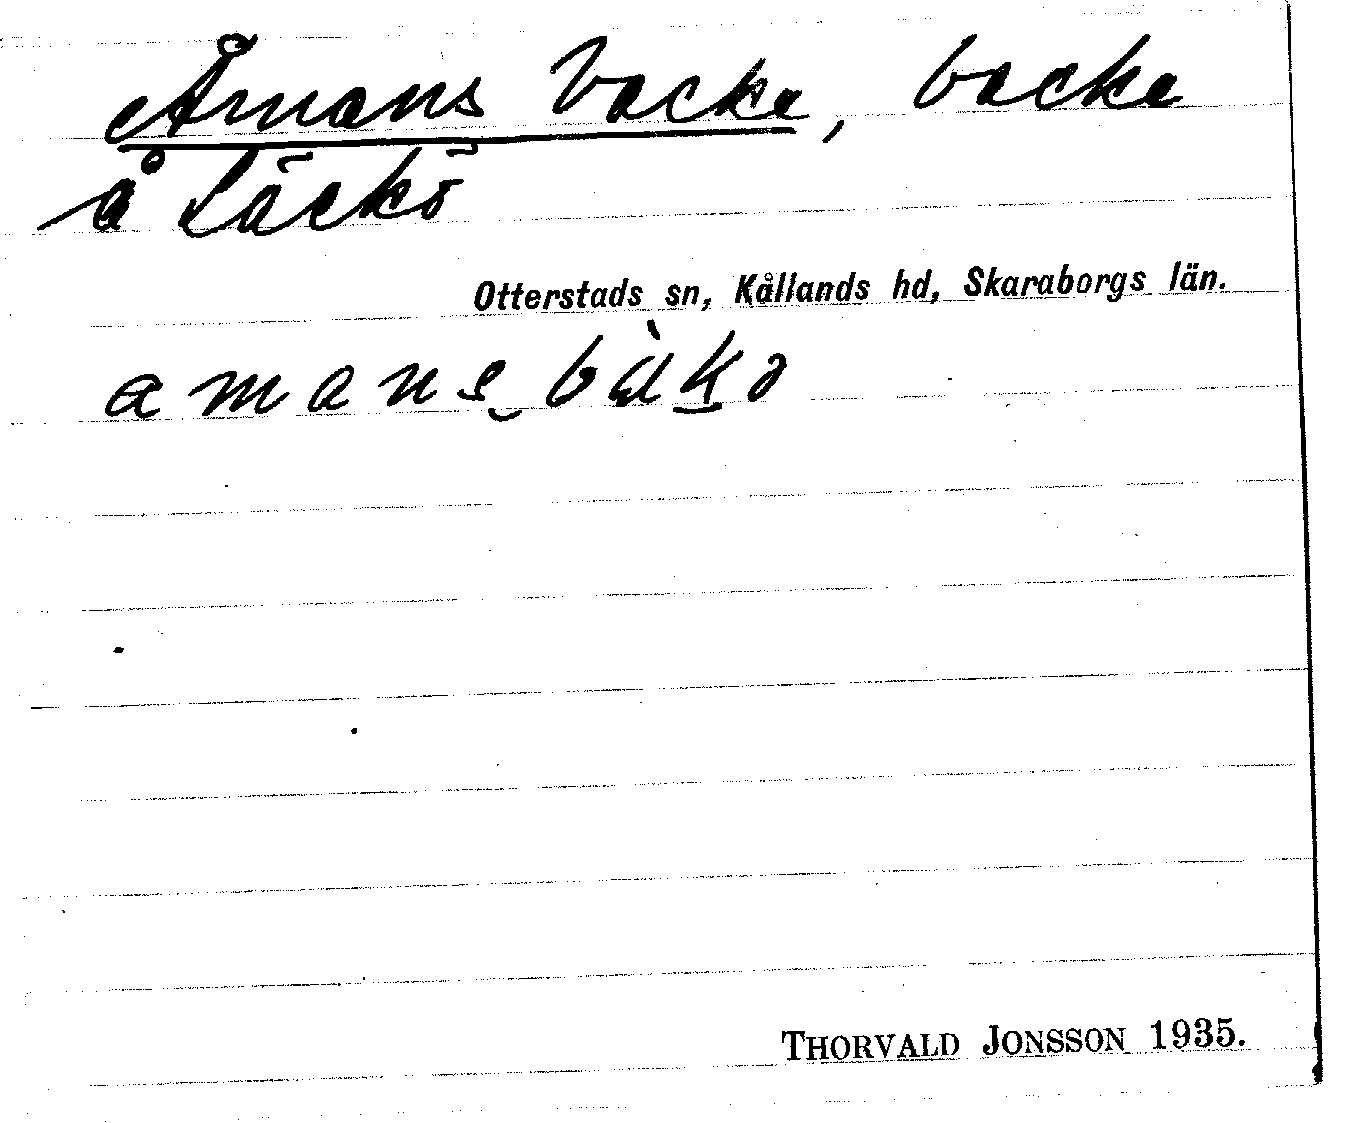 Åmans backe, backe
å Läckö
Otterstads sn, Kållands hd, Skaraborgs län.
THORVALD JONSSON 1935.